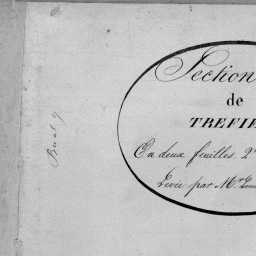 Section
de
TREFIE
En deux feuilles. 2e
Levée par Mr.